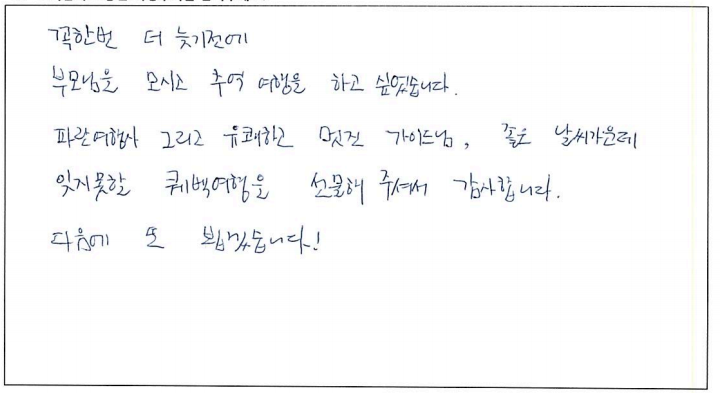 꼭한번 더 늦기전에
부모님을 모시고 추억 여행을 하고 싶었습니다.
파란여행사 그리고 유쾌하고 멋진 가이드님, 좋은 날씨가운데
잊지못할 퀘백여행을 선물해 주셔서 감사합니다.
다음에 또 뵙겠습니다!